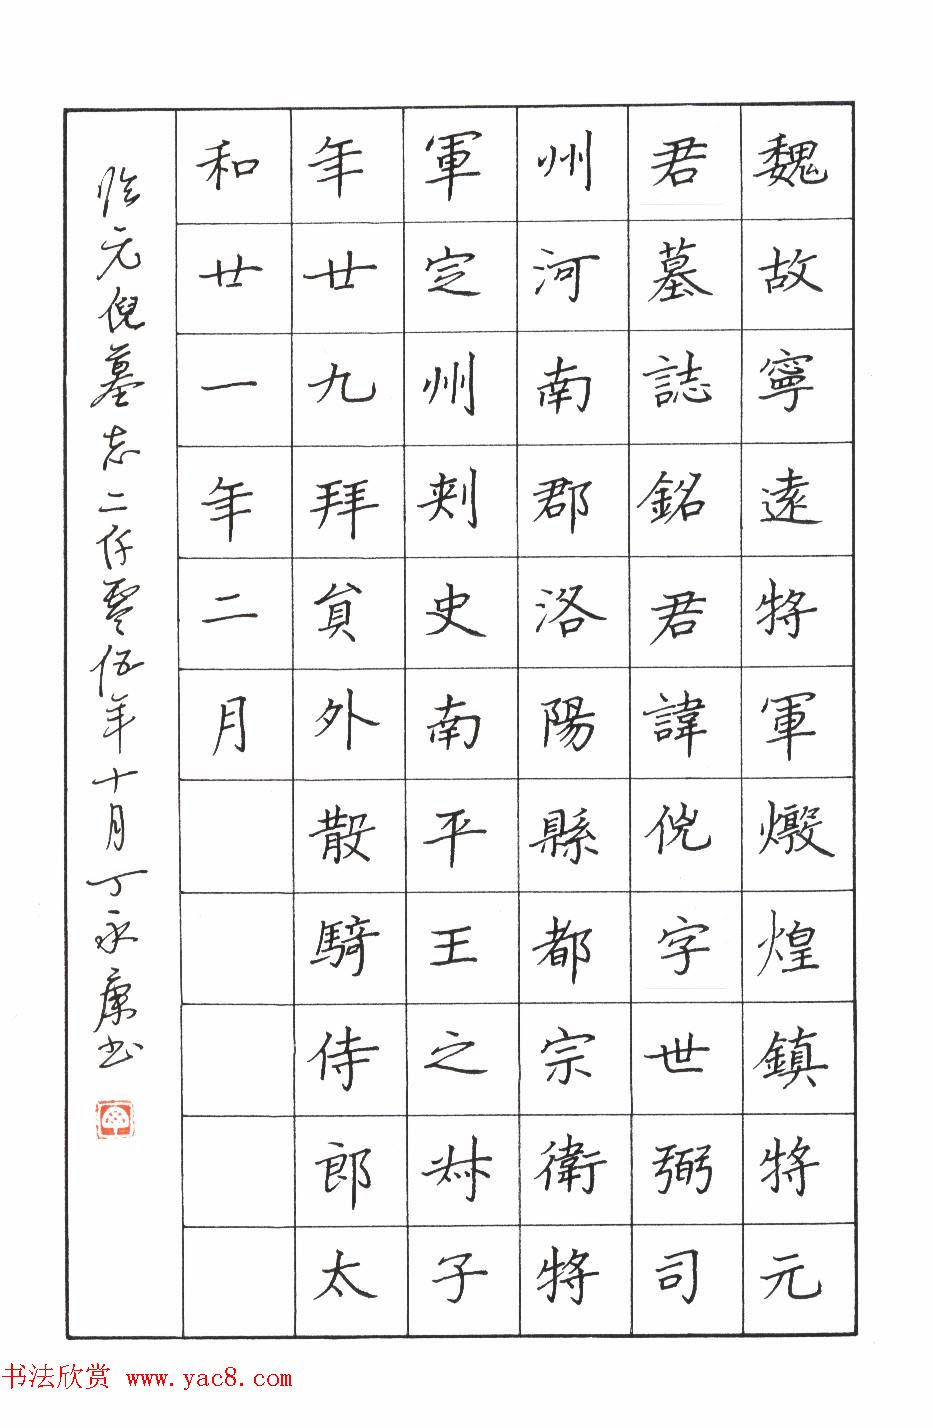 魏故寧遠將軍燉煌鎮將元
君墓誌銘君諱倪字世弼司
州河南郡洛陽縣都宗衛將
軍定州刾史南平王之叔子
年廿九拜貟外散騎侍郎太
和廿一年二月
临元倪墓志二仟零伍年十月丁永康书
书法欣赏 www.yac8.com